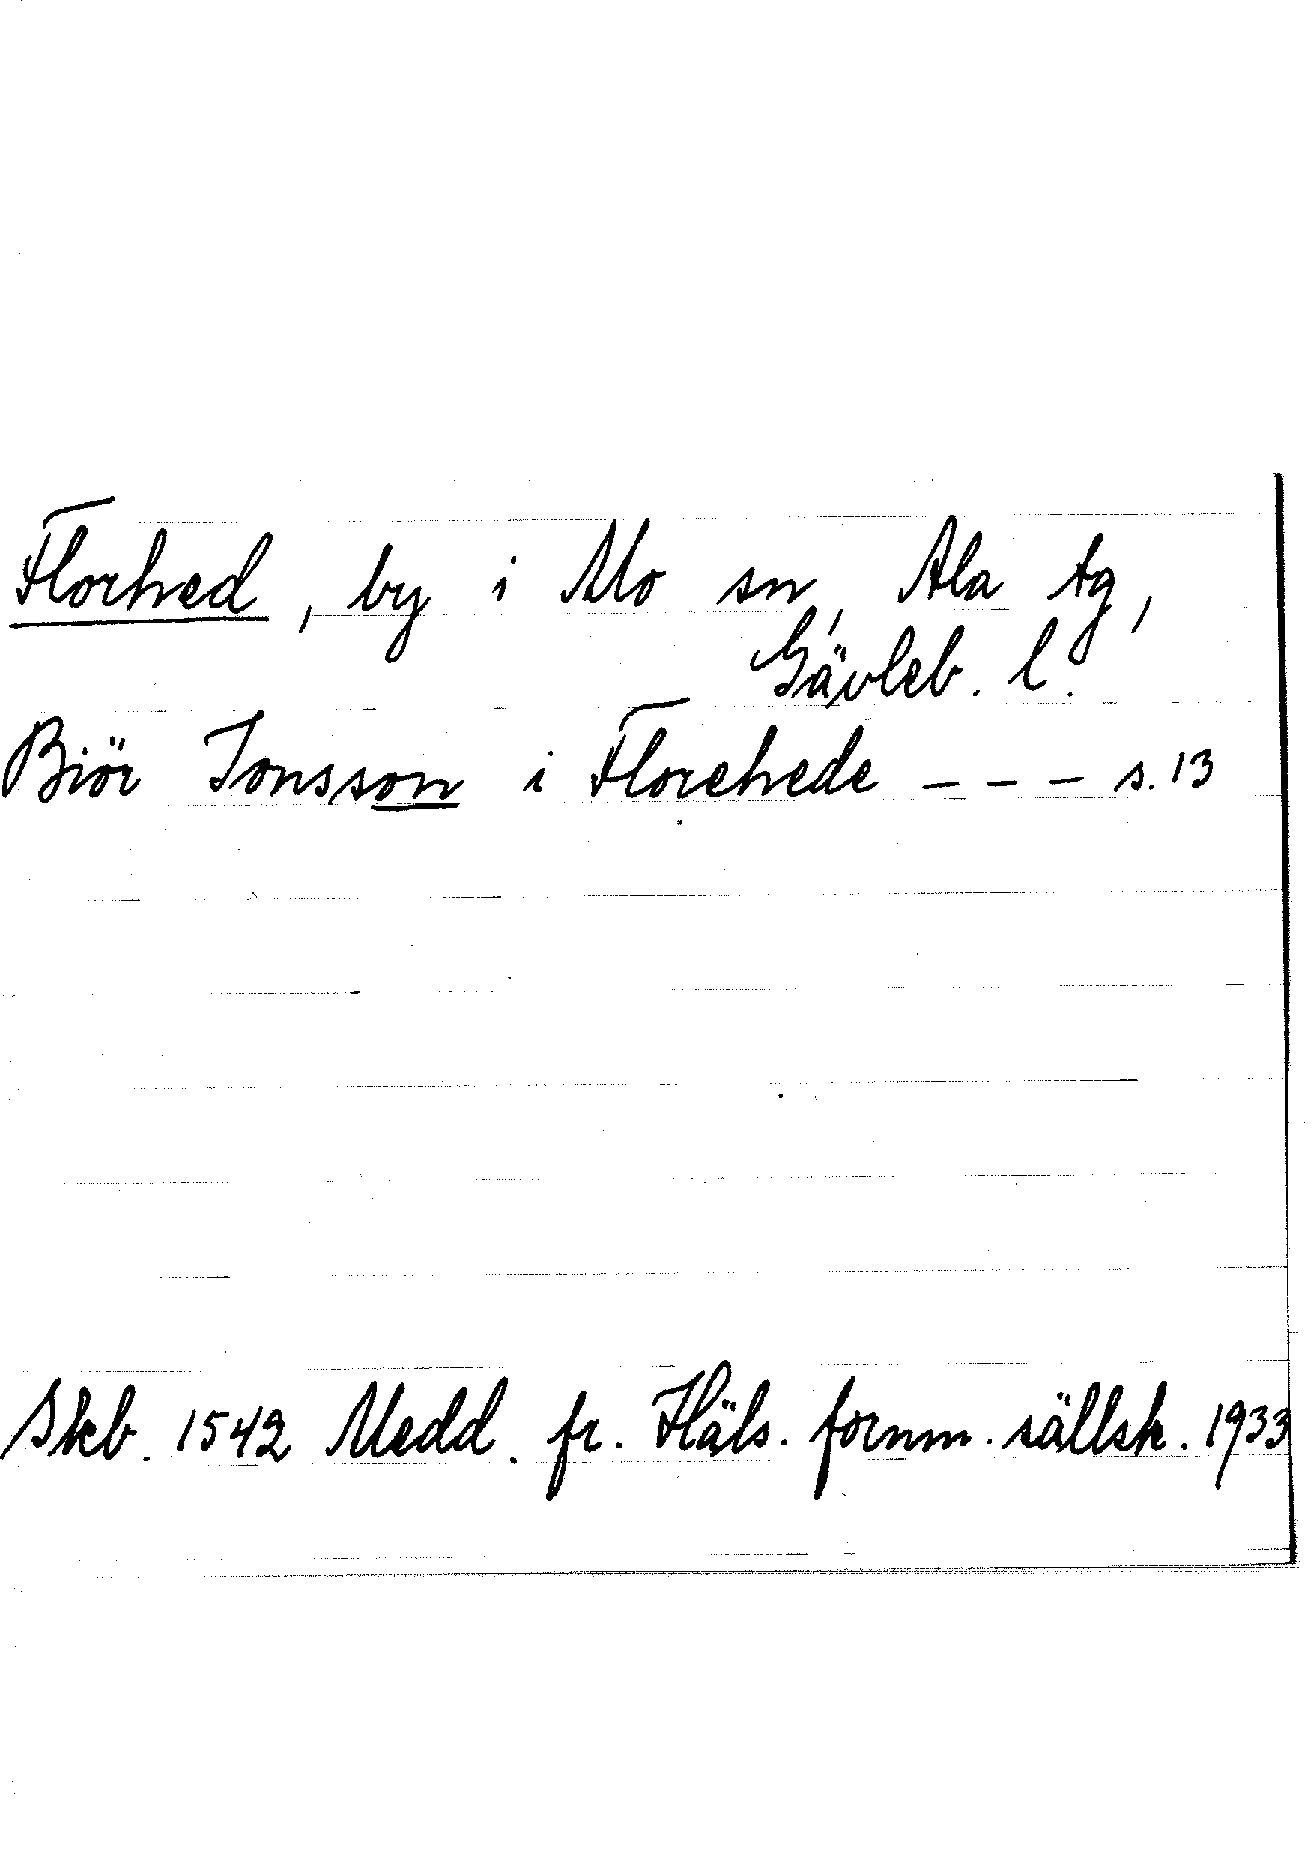 Florhed, by i Mo sn, Ala tg,
Gävleb. l.
Biör Jonsson i Florehede - - - s. 13
Skb. 1542 Medd. fr. Häls. fornm. sällsk. 1933